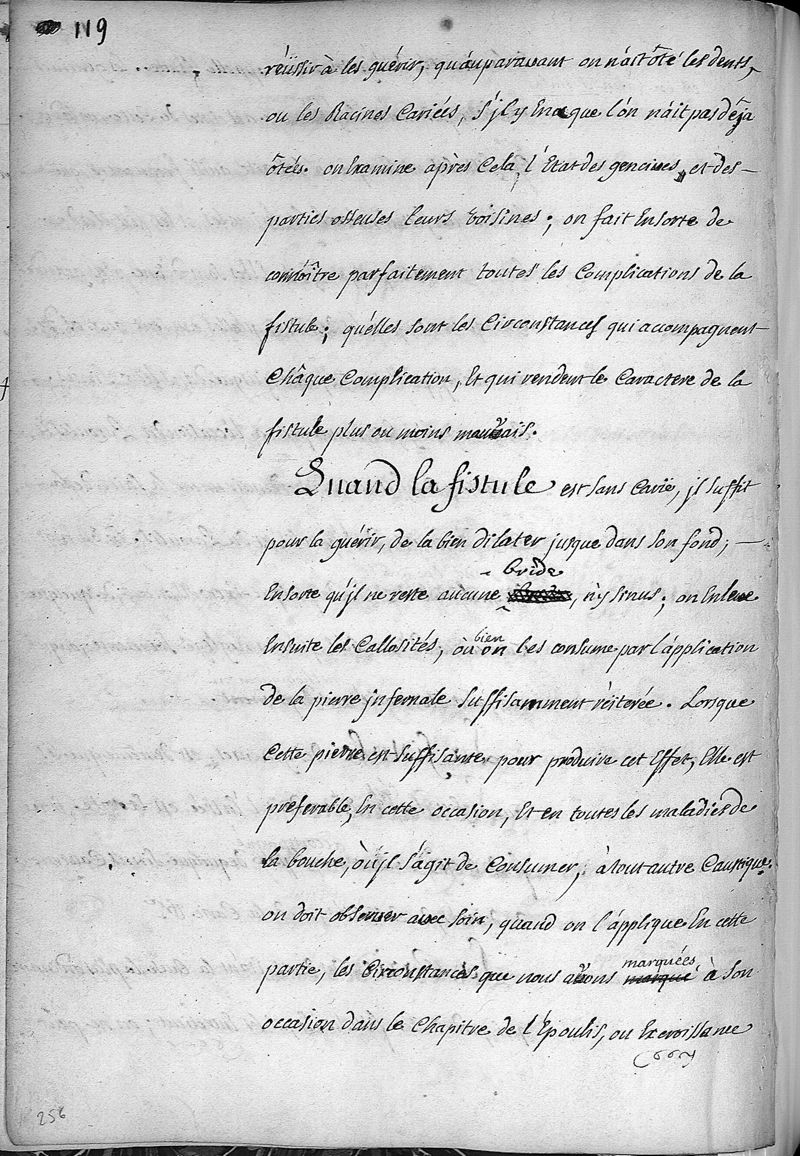 119
réüssir à les guérir, qu'auparavant on n'ait ôté les dents,
ou les Racines Cariées, s'jl y En a que l'on n'ait pas déja
ôtés. on Examine après Cela, l'Etat des gencives, et des -
parties osseuses leurs voisines; on fait Ensorte de
connoître parfaitement toutes les Complications de la
fistule; qu'elles sont les Circonstances qui accompagnent
Châque Complication, Et qui rendent le Caractere de la
fistule plus ou moins mauvais.
Quand la fistule est sans Carie, jl suffit
pour la guérir, de la bien dilater jusque dans son fond; -
bride
Ensorte qu'jl ne reste aucune , n'y sinus; on Enleve
Ensuite les Callosités, où bien on les consume par l'application
de la pierre jnfernale suffisamment réiterée. Lorsque
Cette pierre est suffisante pour produire cet Effet, Elle est
préferable, En cette occasion, Et en toutes les maladies de
la bouche, où jl s'agit de Consumer, à tout autre Caustique.
on doit observer avec soin, quand on l'applique En cette
marquées
partie, les Circonstances que nous avons marqué à son
occasion dans le Chapitre de l'Epoulis, ou Excroissance
256